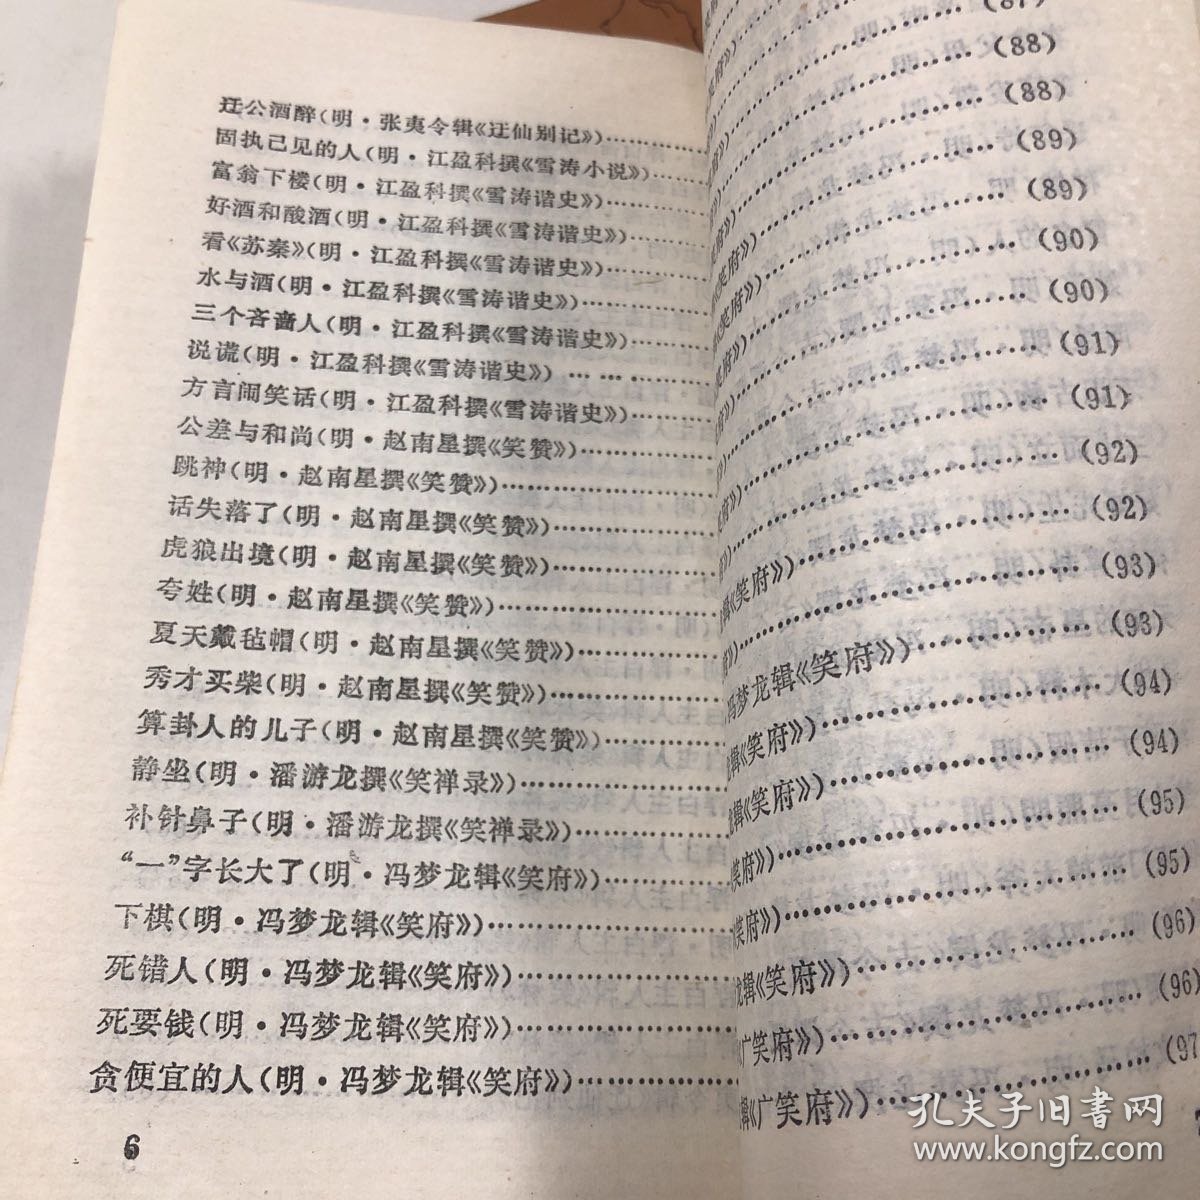 迂公酒醉(明·张夷令辑《迂仙别记》)……………
固执己见的人(明·江盈科撰《雪涛小说》)……………
富翁下楼(明·江盈科撰《雪涛谐史》)……………
好酒和酸酒(明·江盈科撰《雪涛谐史》)……………
看《苏秦》(明·江盈科撰《雪涛谐史》)……………
水与酒(明·江盈科撰《雪涛谐史》)……………
三个吝啬人(明·江盈科撰《雪涛谐史》)……………
说谎(明·江盈科撰《雪涛谐史》)……………
方言闹笑话(明·江盈科撰《雪涛谐史》)……………
公差与和尚(明·赵南星撰《笑赞》)……………
跳神(明·赵南星撰《笑赞》)……………
话失落了(明·赵南星撰《笑赞》)……………
虎狼出境(明·赵南星撰《笑赞》)……………
夸姓(明·赵南星撰《笑赞》)……………
夏天戴毡帽(明·赵南星撰《笑赞》)……………
秀才买柴(明·赵南星撰《笑赞》)……………
算卦人的儿子(明·赵南星撰《笑赞》)……………
静坐(明·潘游龙撰《笑禅录》)……………
补针鼻子(明·潘游龙撰《笑禅录》)……………
“一”字长大了(明·冯梦龙辑《笑府》)……………
下棋(明·冯梦龙辑《笑府》)……………
死错人(明·冯梦龙辑《笑府》)……………
死要钱(明·冯梦龙辑《笑府》)……………
贪便宜的人(明·冯梦龙辑《笑府》)……………
6
(87)
府》)……………(88)
府》)……………(88)
……………(89)
……………(89)
》)……………(90)
笑府》)……………(90)
笑府》)……………(91)
府》)……………(91)
……………(92)
府》)……………(92)
辑《笑府》)……………(93)
》)……………(93)
冯梦龙辑《笑府》)……………(94)
辑《笑府》)……………(94)
龙辑《笑府》)……………(95)
《笑府》)……………(95)
《笑府》)……………(96)
龙辑《笑府》)……………(96)
《广笑府》)……………(97
辑《广笑府》)……………
孔夫子旧书网
www.kongfz.com